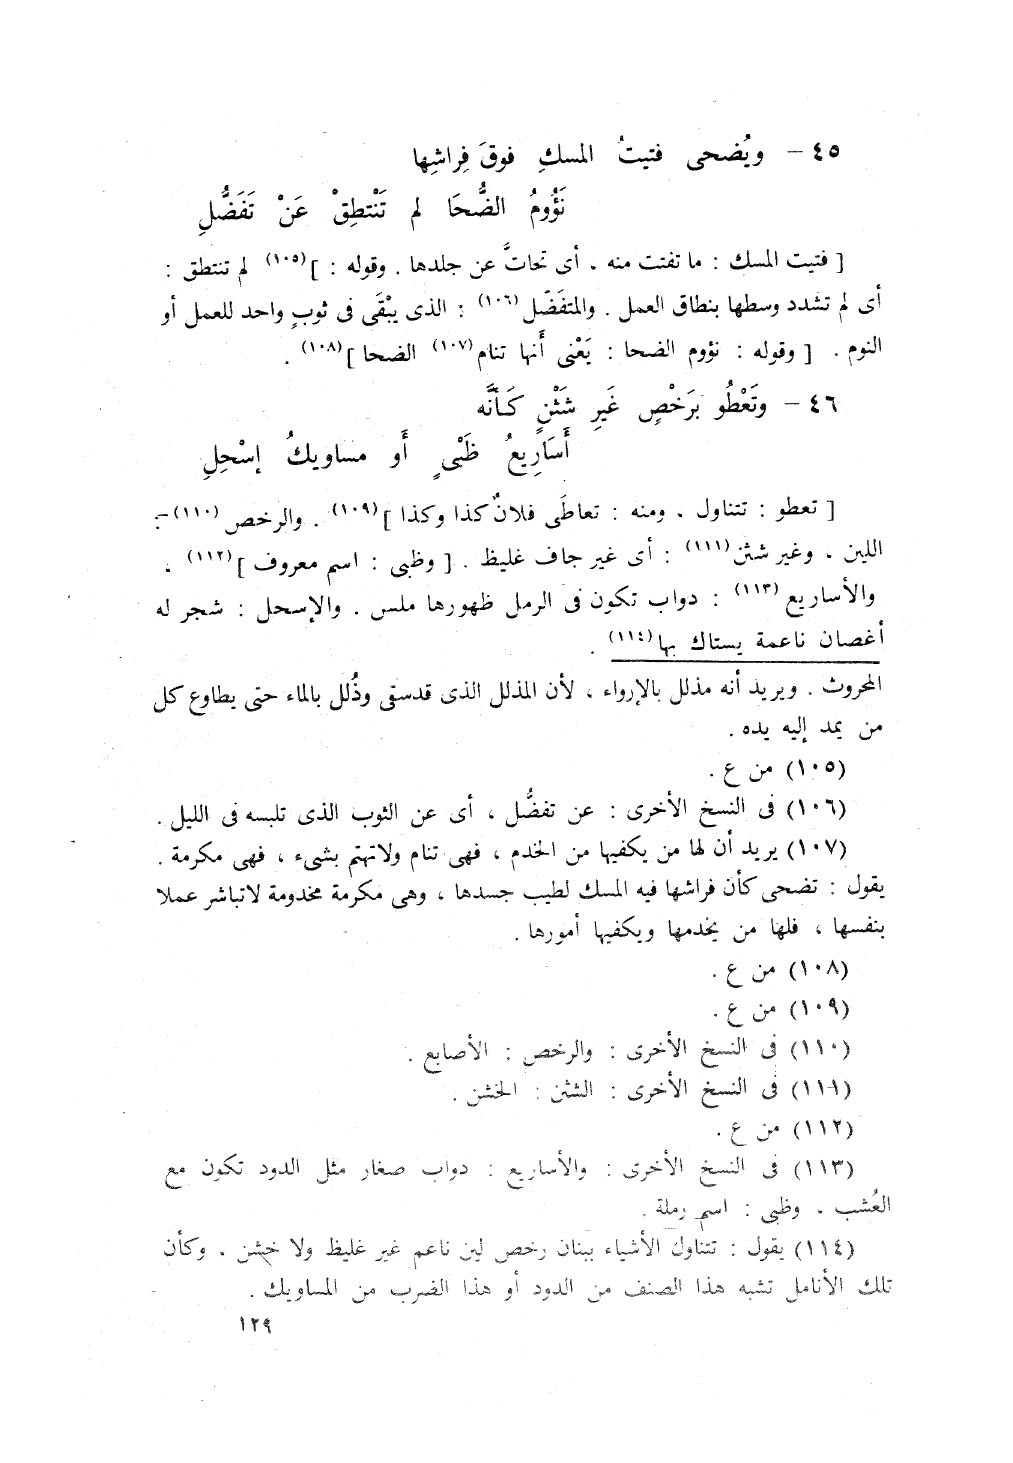 ٤٥ – ويُضحى فتيتُ المسكِ فوقَ فِراشِها
نَؤُومُ الضُّحَا لم تَنْتطِقْ عَنْ تَفَضُّلِ
[ فتيت المسك : ما تفتت منه . أى تحاتَّ عن جلدها . وقوله : ](١٠٥) لم تنتطق :
أى لم تشدد وسطها بنطاق العمل . والمتفَضّل(١٠٦) : الذى يبْقَى فى ثوبٍ واحد للعمل أو
النوم . [ وقوله : نؤوم الضحا : يَعْنى أَنها تنام(١٠٧) الضحا ](١٠٨) .
٤٦ – وتَعْطُو بَرَخْصٍ غَيرِ شَثْنٍ كَأنَّه
أَسَارِيعُ ظَبْىٍ أَو مساويكُ إسْحِلِ
[ تعطو : تتناول . ومنه : تعاطَى فلانٌ كذا وكذا ](١٠٩) . والرخص(١١٠) :
اللين . وغير شثن(١١١) : أى غير جاف غليظ . [ وظبى : اسم معروف ](١١٢) .
والأساريع(١١٣) : دواب تكون فى الرمل ظهورها ملس . والإسحل : شجر له
أغصان ناعمة يستاك بها(١١٤) .
المحروث . ويريد أنه مذلل بالإرواء ، لأن المذلل الذى قدسقى وذُلل بالماء حتى يطاوع كل
من يمد إليه يده .
(١٠٥) من ع .
(١٠٦) فى النسخ الأخرى : عن تفضُّل ، أى عن الثوب الذى تلبسه فى الليل .
(١٠٧) يريد أن لها من يكفيها من الخدم ، فهى تنام ولاتهتم بشىء ، فهى مكرمة .
يقول : تضحى كأن فراشها فيه المسك لطيب جسدها ، وهى مكرمة مخدومة لاتباشر عملا
بنفسها ، فلها من يخدمها ويكفيها أمورها .
(١٠٨) من ع .
(١٠٩) من ع .
(١١٠) فى النسخ الأخرى : والرخص : الأصابع .
(١١١) فى النسخ الأخرى : الشثن : الخشن .
(١١٢) من ع .
(١١٣) فى النسخ الأخرى : والأساريع : دواب صغار مثل الدود تكون مع
العُشب . وظبى : اسم رملة .
(١١٤) يقول : تتناول الأشياء ببنان رخص لين ناعم غير غليظ ولا خشن . وكأن
تلك الأنامل تشبه هذا الصنف من الدود أو هذا الضرب من المساويك .
١٢٩